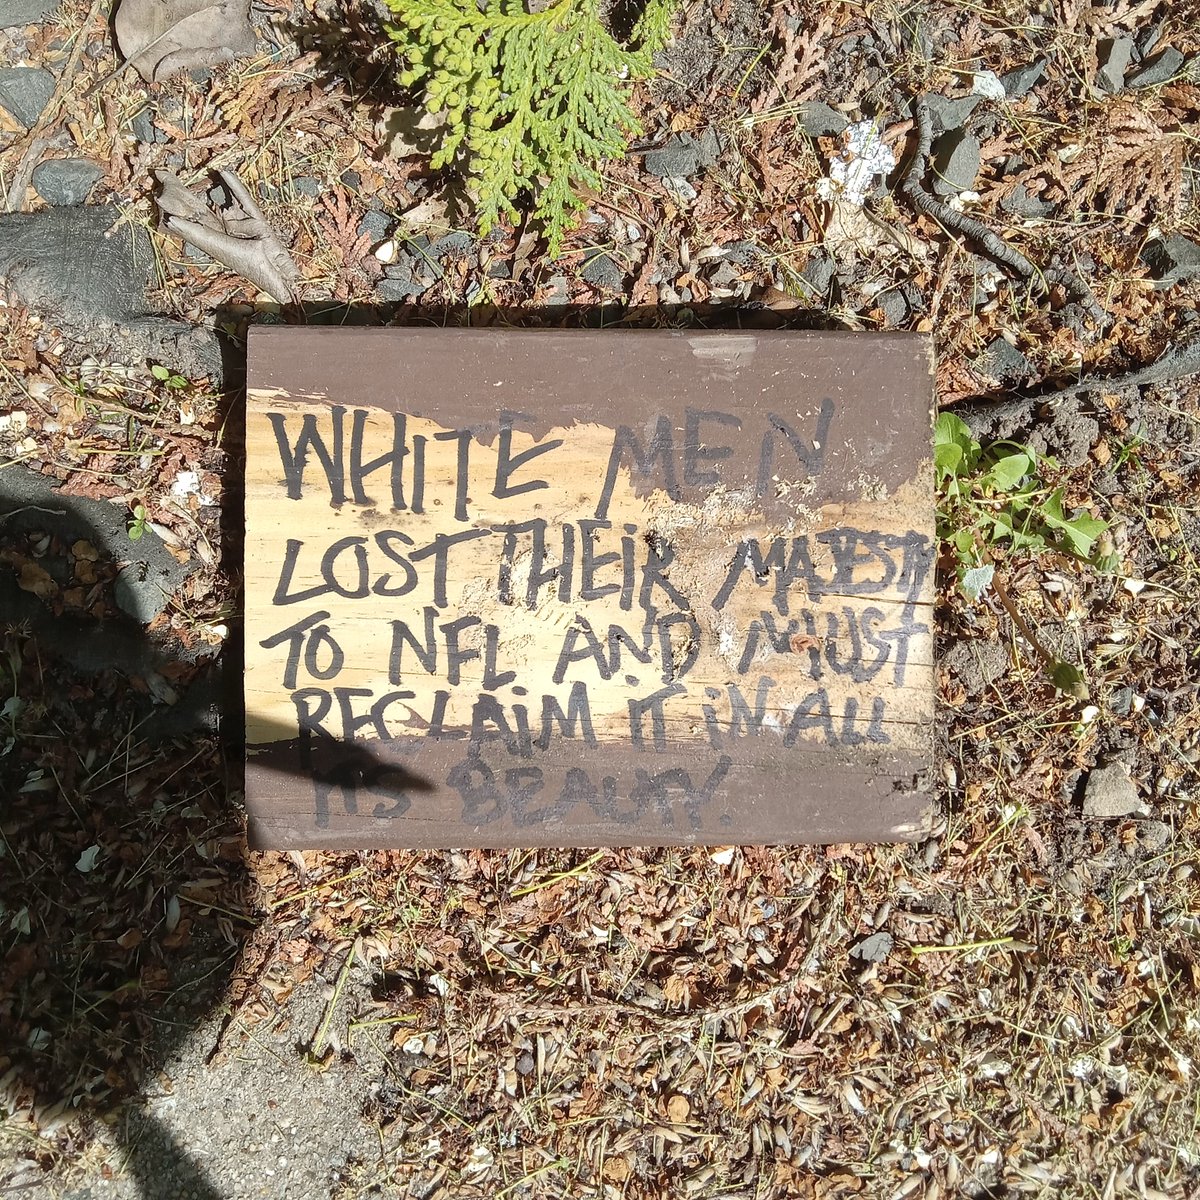 WHITE MEN
LOST THEiR MAJESTY
TO NFL AND MUST
RECLAiM iT iN ALL
iTS BEAUTY.